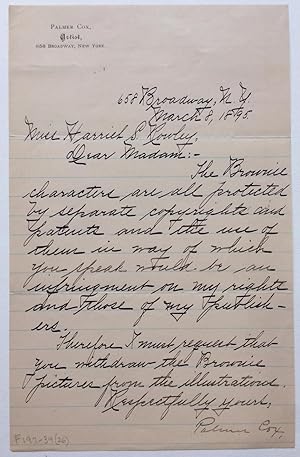 PALMER COX,
Artist,
658 BROADWAY, NEW YORK.
658 Broadway, N. Y.
March 8, 1895.
Miss Harriet S. Rowley,
Dear Madam:-
The Brownie
characters are all protected
by separate copyrights and
patents and the use of
them in way of which
you speak would be an
infringment on my rights
and those of my publish-
ers.
Therefore I must request that
you withdraw the Brownie
pictures from the illustrations.
Respectfully yours,
Palmer Cox,
F197-39(26)